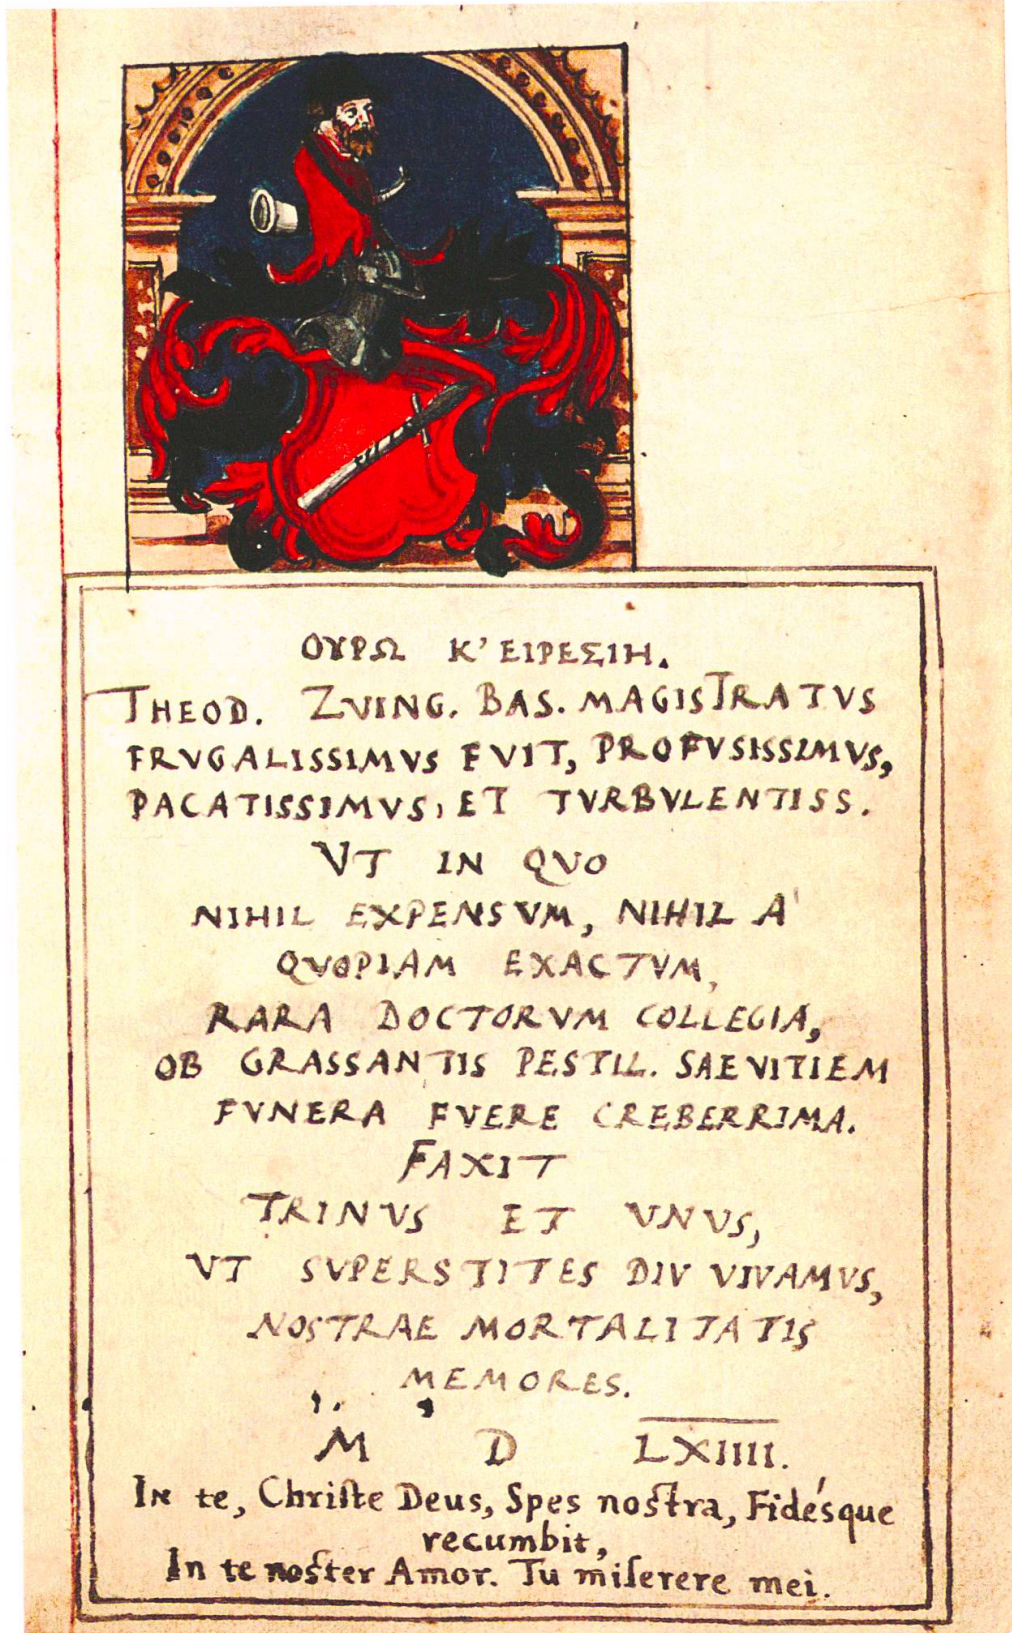 ΟΥΡΩ Κ' ΕΙΡΕΣΙΗ.
THEOD. ZVING. BAS. MAGISTRATVS
FRVGALISSIMVS FVIT, PROFVSISSIMVS,
PACATISSIMVS, ET TVRBVLENTISS.
VT IN QVO
NIHIL EXPENSVM, NIHIL A'
QVOPIAM EXACTVM,
RARA DOCTORVM COLLEGIA,
OB GRASSANTIS PESTIL. SAEVITIEM
FVNERA FVERE CREBERRIMA.
FAXIT
TRINVS ET VNVS,
VT SVPERSTITES DIV VIVAMVS,
NOSTRAE MORTALITATIS
MEMORES.
M D LXIIII.
In te, Chriſte Deus, Spes noſtra, Fidésque
recumbit,
In te noſter Amor. Tu miſerere mei.